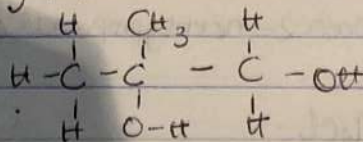 H CH3 H
H-C-C-C-OH
H O-H H